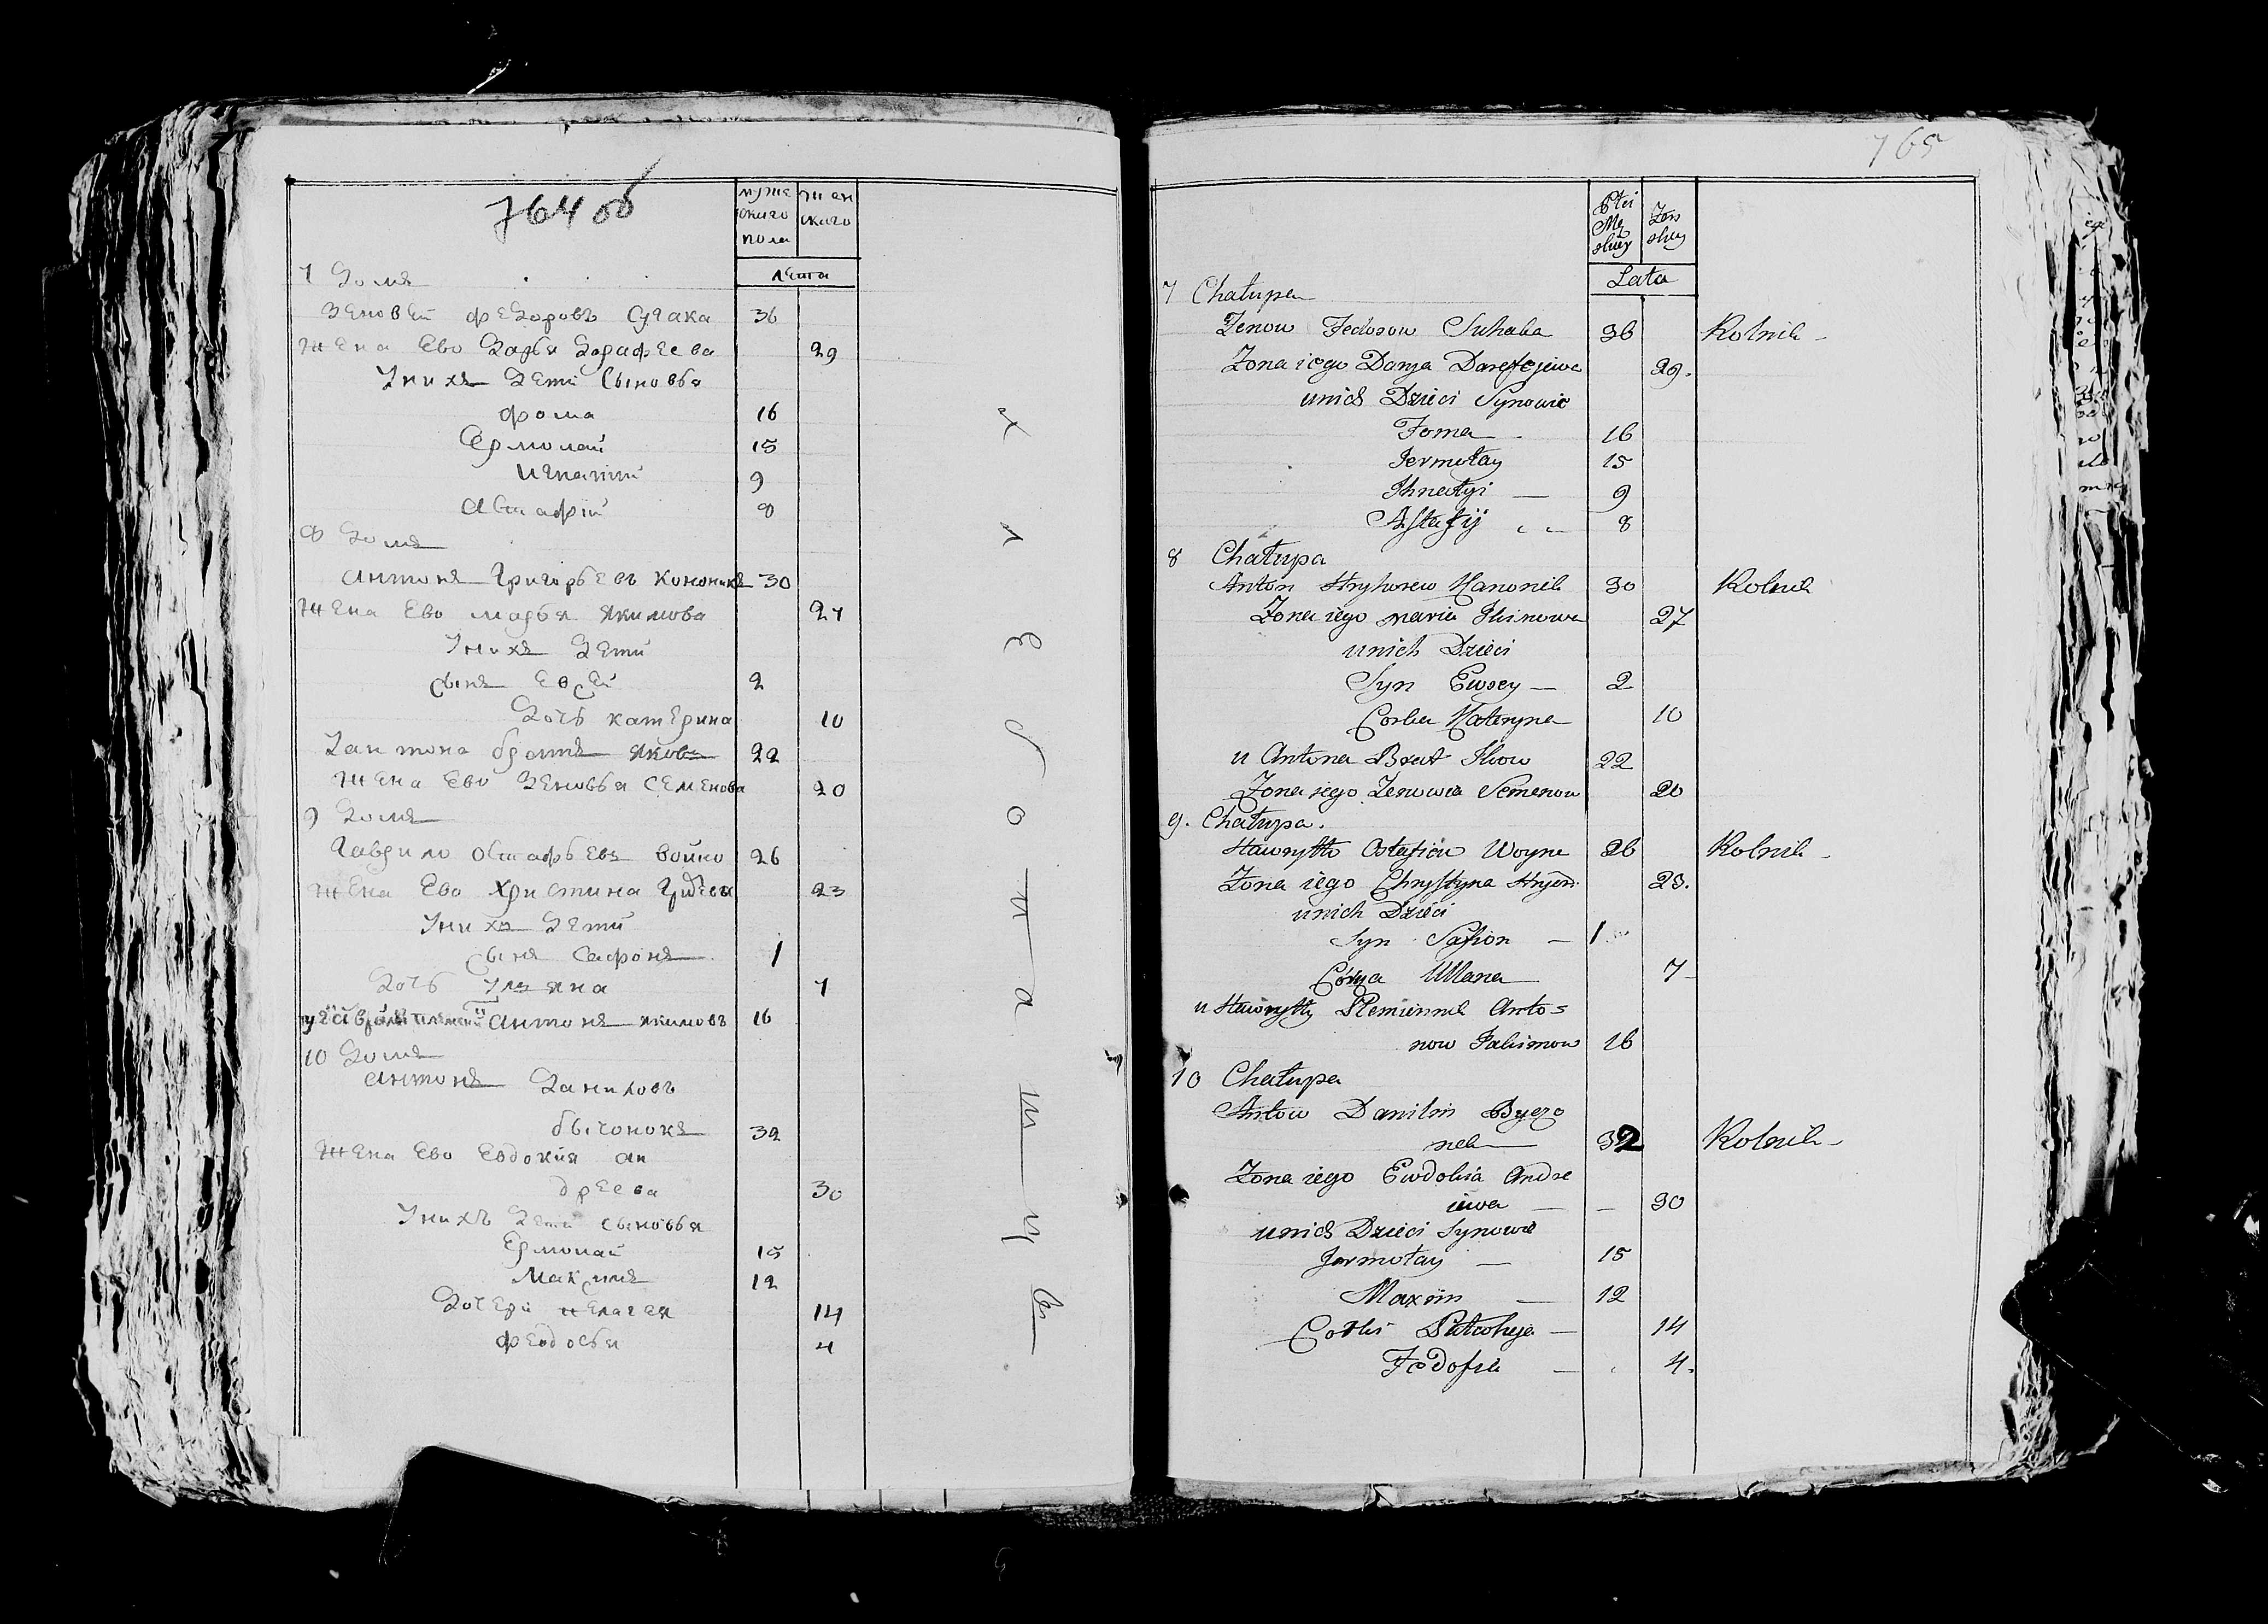 764 об
муже
ского
пола
жен
ского
лета
7 Домъ
Зеновей Федоровъ Сугака 36
Жена Ево Дарья Дорафеева 29
Уних Дети Сыновья
Фома 16
Ермолай 15
Игнатий 9
Астафiй 8
8 Домъ
Антонъ Григорьевъ Кононикъ 30
Жена Ево марья Якимова 27
Унихъ Дети
сынъ Евсей 2
Дочь катерина 10
Уантона братъ Яковъ 22
Жена Ево Зеновья Семенова 20
9 Домъ
Гаврило Остафьевъ войно 26
Жена Ево Христина 23
Унихъ Дети
сынъ Сафонъ 1
Дочь Уляна 7
Антонъ Якимовъ 16
10 Домъ
Антонъ Даниловъ
бычонокъ 32
Жена Ево Евдокия Ан
дреева 30
Унихъ Дети сыновья
Ермолай 15
Максимъ 12
Дочери Пелагея 14
Федосья 4
хлебопашцы
765
Płci
Mę
skiey
Żen
skiey
Lata
7 Chałupa
Zenow Fedorow Suhaka 36 Rolnik -
Zona iego Darya Darefejewa 29.
unich Dzieci Synowie
Foma 16
Jermołay 15
Ihnatyi — 9
Astafij 8
8 Chałupa
Anton Hryhorew Kanonik 30 Rolnik
Zona iego maria Akimowa 27
unich Dzieci
Syn Ewsey — 2
Corka Kateryna 10
u Antona Brat Jkow 22
Zona iego Zenowia Semenow 20
9. Chałupa.
Hawryłło Ostafiew Woyno 26 Rolnik -
Zona iego Chrystyna 23.
unich Dzieci
Syn Safron — 1
Córka Ullana 7
u Hawryłły Plemiennik Anto=
now Jakimow 16
10 Chałupa
Antow Daniłow Byczo
nek 32 Rolnik -
Zona iego Ewdokia Andre
iewa — 30
unich Dzieci Synowie
Jermołay — 15
Maxim — 12
Corki — 14
Fedosia — 4.